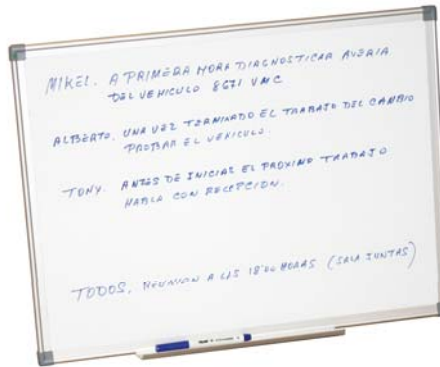 MIKEL. A PRIMERA HORA DIAGNOSTICAR AVERIA
DEL VEHICULO 8671 VMC
ALBERTO. UNA VEZ TERMINADO EL TRABAJO DEL CAMBIO
PROBAR EL VEHICULO.
TONY. ANTES DE INICIAR EL PROXIMO TRABAJO
HABLA CON RECEPCION.
TODOS. REUNION A LAS 18'00 HORAS (SALA JUNTAS)